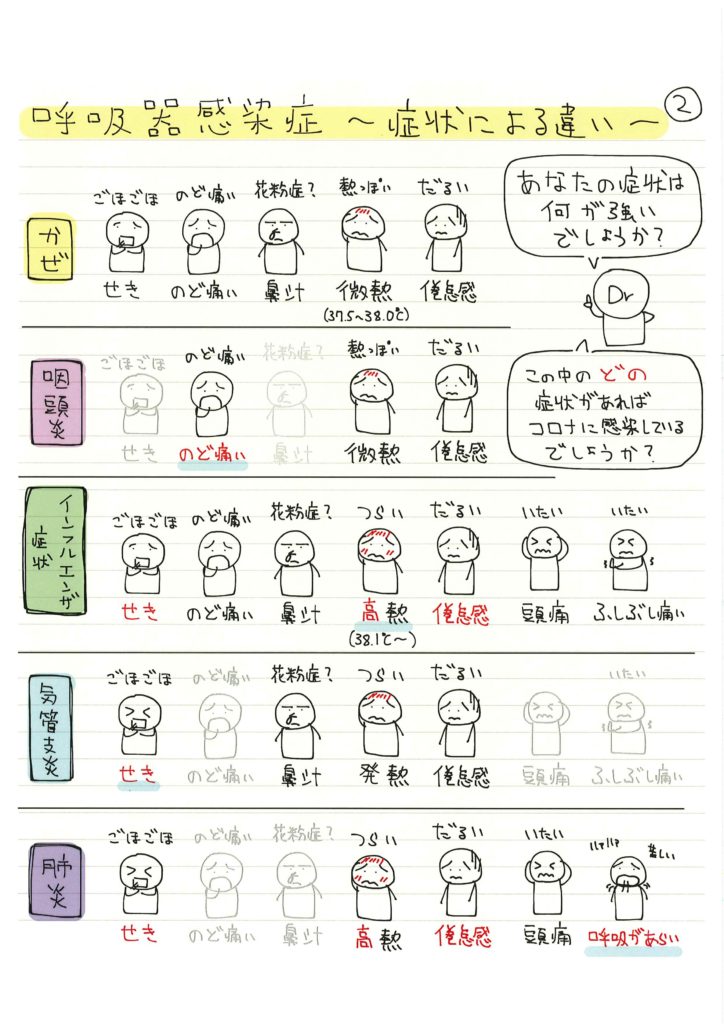 ②
呼吸器感染症 ～症状による違い～
あなたの症状は
何が強い
でしょうか?
Dr
この中のどの
症状があれば
コロナに感染している
でしょうか?
かぜ
ごほごほ のど痛い 花粉症? 熱っぽい だるい
せき のど痛い 鼻汁 微熱 倦怠感
(37.5～38.0℃)
咽頭炎
ごほごほ のど痛い 花粉症? 熱っぽい だるい
せき のど痛い 鼻汁 微熱 倦怠感
インフルエンザ
症状
ごほごほ のど痛い 花粉症? つらい だるい いたい いたい
せき のど痛い 鼻汁 高熱 倦怠感 頭痛 ふしぶし痛い
(38.1℃～)
気管支炎
ごほごほ のど痛い 花粉症? つらい だるい いたい
せき のど痛い 鼻汁 発熱 倦怠感 頭痛 ふしぶし痛い
肺炎
ごほごほ のど痛い 花粉症? つらい だるい いたい ハァハァ 苦しい
せき のど痛い 鼻汁 高熱 倦怠感 頭痛 呼吸があらい